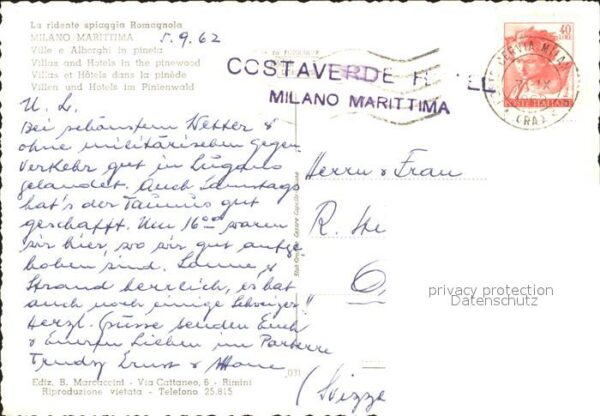 La ridente spiaggia Romagnola
MILANO MARITTIMA
5.9.62
Ville e Alberghi in pineta
Villas and Hotels in the pinewood
Villas et Hôtels dans la pinède
Villen und Hotels im Pinienwald
COSTAVERDE H EL
MILANO MARITTIMA
40
LIRE
POSTE ITALIANE
CERVIA MILANO
(RA)
U. L.
Bei schönstem Wetter &
ohne militärischen Gegen
verkehr gut in Lugano
gelandet. Auch Samstags
hat's der Taunus gut
geschafft. Um 16°° waren
wir hier, wo wir gut aufge
hoben sind. Sonne &
Strand herrlich, es hat
auch noch einige Schweizer
Herzl. Grüsse senden Euch
& Euren Lieben im Parterre
Trudy Ernst &
Herrn & Frau
R. Ste
O
(Svizze
privacy protection
Datenschutz
Ediz. B. Marcaccini - Via Cattaneo, 6 - Rimini
Riproduzione vietata - Telefono 25.815
031